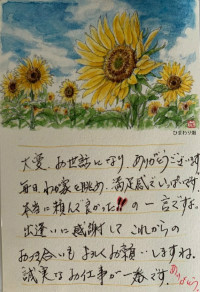 ひまわり畑
大変、お世話になり、ありがとうございます。
毎日、わが家を眺め、満足感でいっぱいです。
本当に頼んで良かった!!の一言ですね。
出逢いに感謝して これからの
お付合いもよろしくお願いしますね。
誠実なお仕事が一番です。